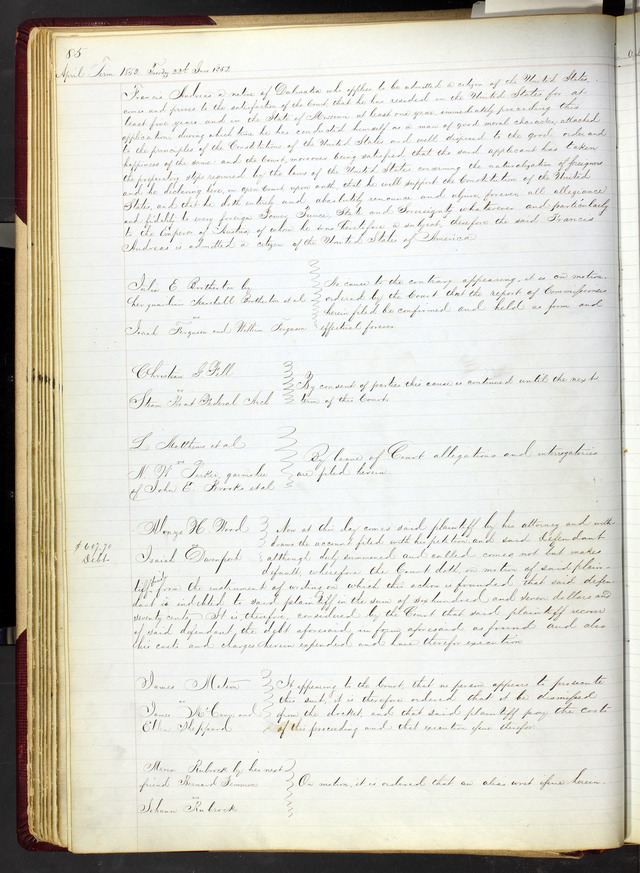 85
April Term 1852. Tuesday 22d June 1852
Francis Andreas a native of Dalmatia who applies to be admitted a citizen of the United States,
comes and proves to the satisfaction of the Court that he has resided in the United States for at
least five years and in the State of Missouri at least one year, immediately preceding this
application during which time he has conducted himself as a man of good moral character, attached
to the principles of the Constitution of the United States and well disposed to the good order and
happiness of the same: and the Court, moreover being satisfied that the said applicant has taken
the preparatory steps required by the laws of the United States concerning the naturalization of foreigners
and he declaring here, in open Court upon oath, that he will support the Constitution of the United
States, and that he doth entirely and absolutely renounce and abjure forever all allegiance
and fidelity to every foreign Power, Prince, State and Sovereignty whatsoever and particularly
to the Emperor of Austria of whom he was heretofore a subject, therefore the said Francis
Andreas is admitted a citizen of the United States of America
John E. Brotherton by
her guardian Marshall Brotherton et al
vs
Isaah Ferguson and William Ferguson
No cause to the contrary appearing, it is on motion,
ordered by the Court that the report of Commissioners
herein filed be confirmed and held as firm and
effectual forever.
Christian G Fell
vs
Steam Boat Federal Arch
By consent of parties this cause is continued until the next
term of this Court.
L Matthews et al
vs
W. W. Parker, garnishee
of John E. Brooks et al
By leave of Court allegations and interrogatories
are filed herein
$607.70
Debt.
Alonzo W. Wood
vs
Isaiah Davenport
Now at this day comes said plaintiff by his attorney and with-
draws the account filed with his petition and said defendant
although duly summoned and called comes not but makes
default, wherefore the Court doth on motion of said plain-
tiff, find from the instrument of writing on which this action is founded that said defen-
dant is indebted to said plaintiff in the sum of six hundred and seven dollars and
seventy cents. It is therefore considered by the Court that said plaintiff recover
of said defendant the debt aforesaid in form aforesaid as found and also
his costs and charges herein expended and have therefor execution
James Maton
vs
James McCragen and
Sheppard
It appearing to the Court, that no person appears to prosecute
this suit, it is therefore ordered that it be dismissed
from the docket, and that said plaintiff pay the costs
of this proceeding and that execution issue therefor
Maria Rubrock by her next
friend Bernard Temmen
vs
Johann Rubrock
On motion, it is ordered that an alias writ issue herein.